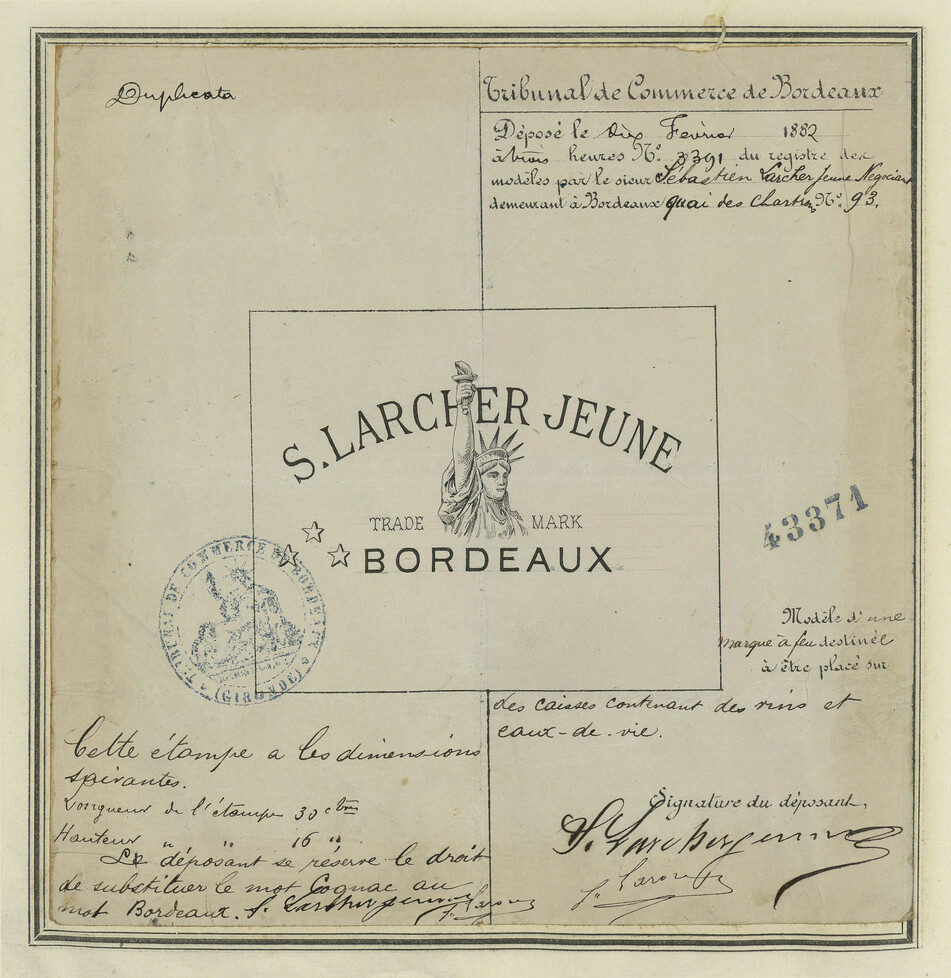 Duplicata
Tribunal de Commerce de Bordeaux
Déposé le dix Fevrier 1882
à trois heures No. 3391 du registre des
modèles par le sieur Sébastien Larcher Jeune Negociant
demeurant à Bordeaux quai des Chartrons No. 93.
S. LARCHER JEUNE
TRADE MARK
BORDEAUX
TRIBUNAL DE COMMERCE DE BORDEAUX
(GIRONDE)
43371
Modèle d'une
marque à feu destinée
à être placé sur
des caisses contenant des vins et
eaux-de-vie.
Cette étampe a les dimensions
suivantes.
Longueur de l'étampe 30 c
Hauteur " " 16 "
Le déposant se réserve le droit
de substituer le mot Cognac au
mot Bordeaux. S. Larcher jeune
Signature du déposant,
S. Larcher jeune